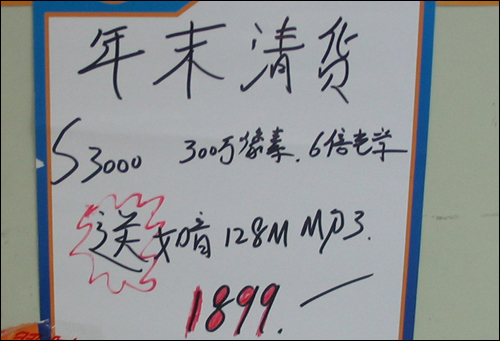 年末清货
S3000 300万像素.6倍光学
送 128M MP3.
1899.一